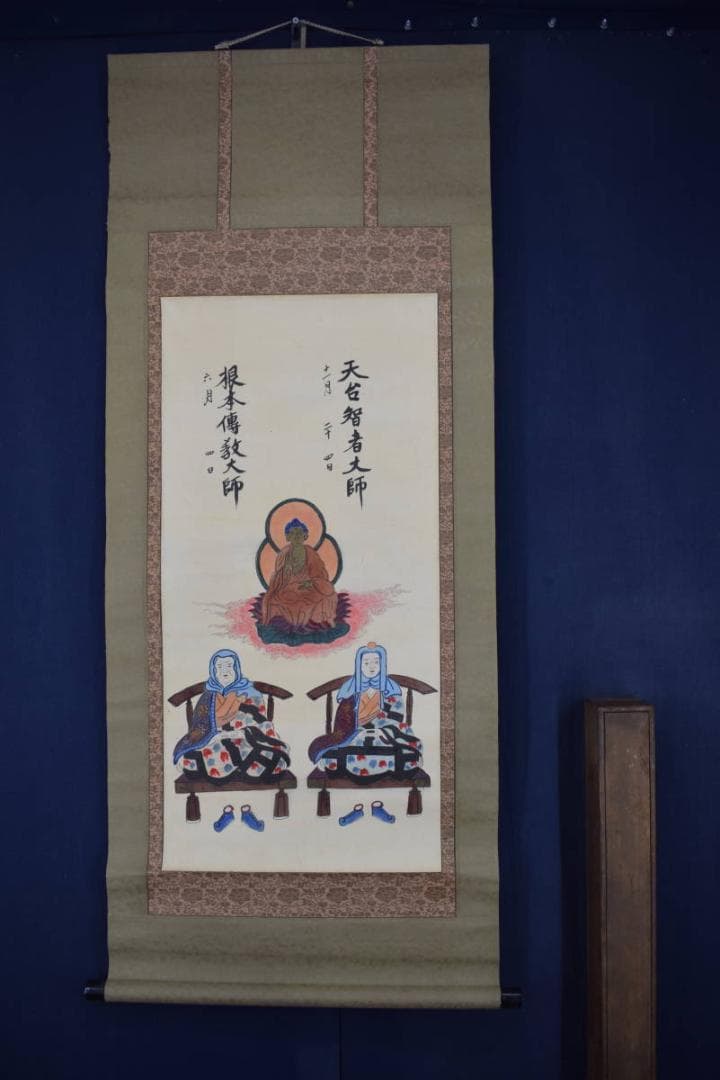 天台智者大師
十一月 二十四日
根本傳教大師
六月 四日